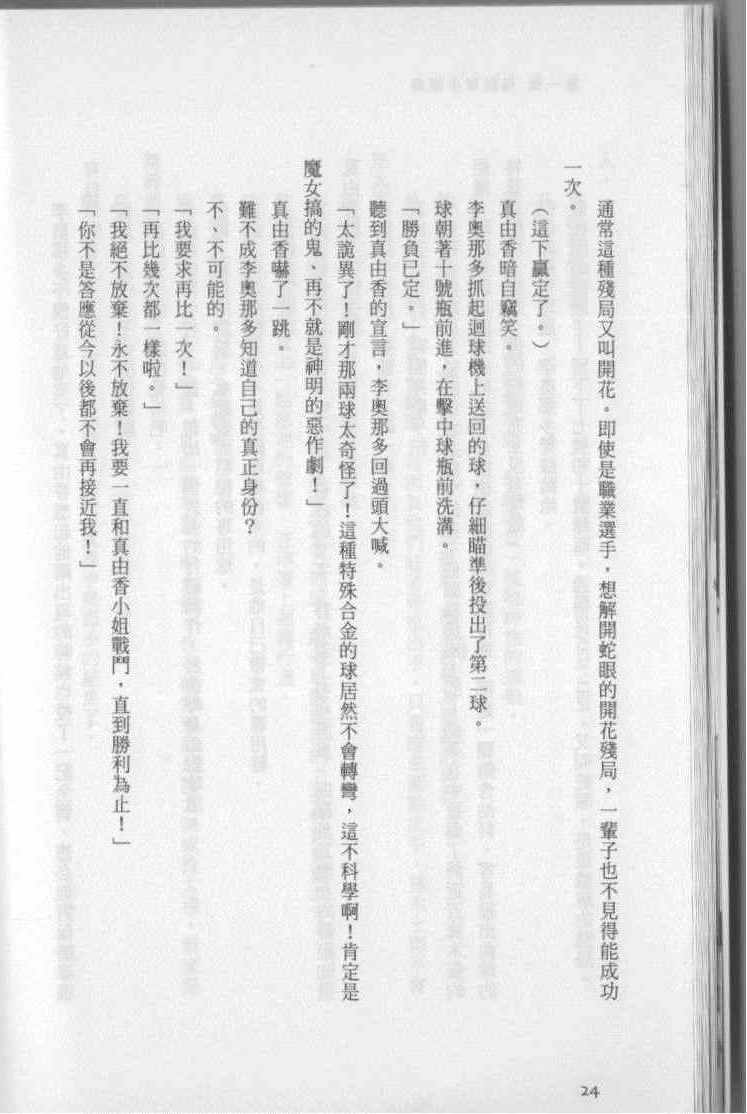 通常這種殘局又叫開花。即使是職業選手，想解開蛇眼的開花殘局，一輩子也不見得能成功
一次。
（這下贏定了。）
真由香暗自竊笑。
李奧那多抓起迴球機上送回的球，仔細瞄準後投出了第二球。
球朝著十號瓶前進，在擊中球瓶前洗溝。
「勝負已定。」
聽到真由香的宣言，李奧那多回過頭大喊。
「太詭異了！剛才那兩球太奇怪了！這種特殊合金的球居然不會轉彎，這不科學啊！肯定是
魔女搞的鬼、再不就是神明的惡作劇！」
真由香嚇了一跳。
難不成李奧那多知道自己的真正身份？
不、不可能的。
「我要求再比一次！」
「再比幾次都一樣啦。」
「我絕不放棄！永不放棄！我要一直和真由香小姐戰鬥，直到勝利為止！」
「你不是答應從今以後都不會再接近我！」
24